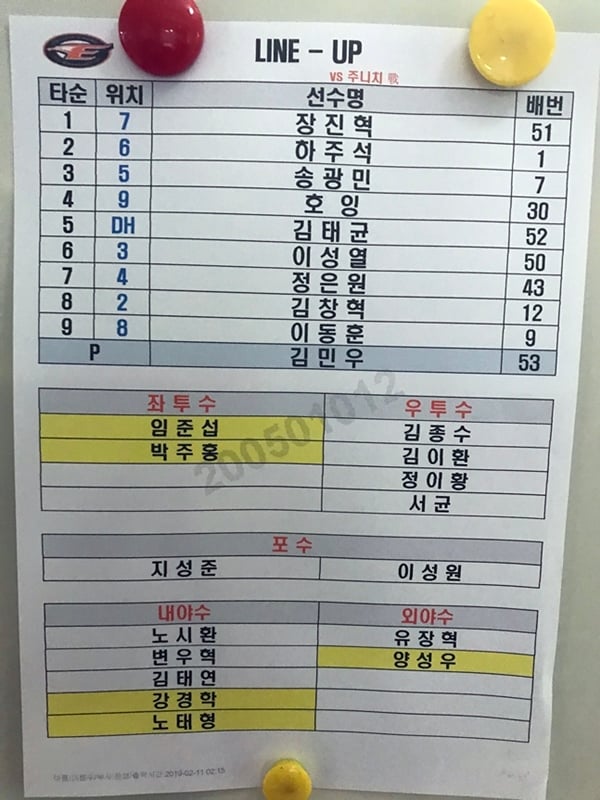 LINE - UP
vs 주니치 戰
타순 위치 선수명 배번
1 7 장진혁 51
2 6 하주석 1
3 5 송광민 7
4 9 호잉 30
5 DH 김태균 52
6 3 이성열 50
7 4 정은원 43
8 2 김창혁 12
9 8 이동훈 9
P 김민우 53
좌투수 우투수
임준섭 김종수
박주홍 김이환
정이황
서균
포수
지성준 이성원
내야수 외야수
노시환 유장혁
변우혁 양성우
김태연
강경학
노태형
200501012
2019-02-11 02:15